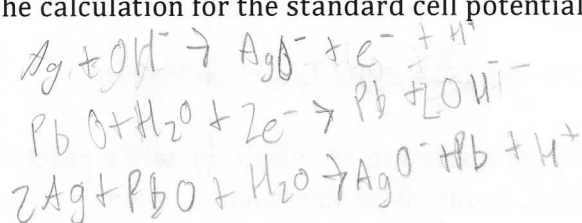 he calculation for the standard cell potential
Ag + OH⁻ → AgO⁻ + e⁻ + H⁺
PbO + H₂O + 2e⁻ → Pb + 2OH⁻
2Ag + PbO + H₂O → AgO⁻ + Pb + H⁺